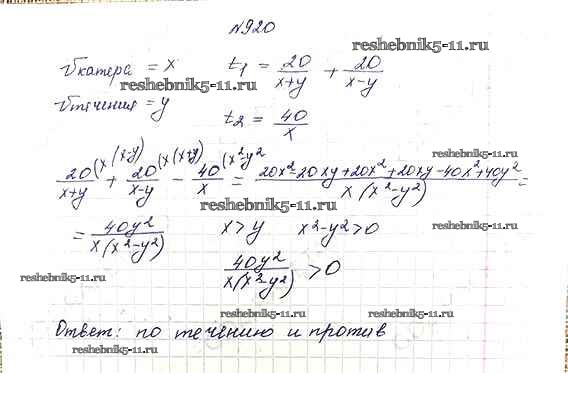 №920
reshebnik5-11.ru
vкатера = x t₁ = 20/(x+y) + 20/(x-y)
reshebnik5-11.ru
vтечения = y t₂ = 40/x
reshebnik5-11.ru
20/(x+y) (x(x-y) + 20/(x-y) (x(x+y) - 40/x (x²-y² = (20x²-20xy+20x²+20xy-40x²+40y²)/(x(x²-y²)) =
reshebnik5-11.ru
reshebnik5-11.ru
= 40y²/(x(x²-y²)) x>y x²-y²>0
reshebnik5-11.ru reshebnik5-11.ru
40y²/(x(x²-y²)) >0
reshebnik5-11.ru reshebnik5-11.ru
Ответ: по течению и против
reshebnik5-11.ru